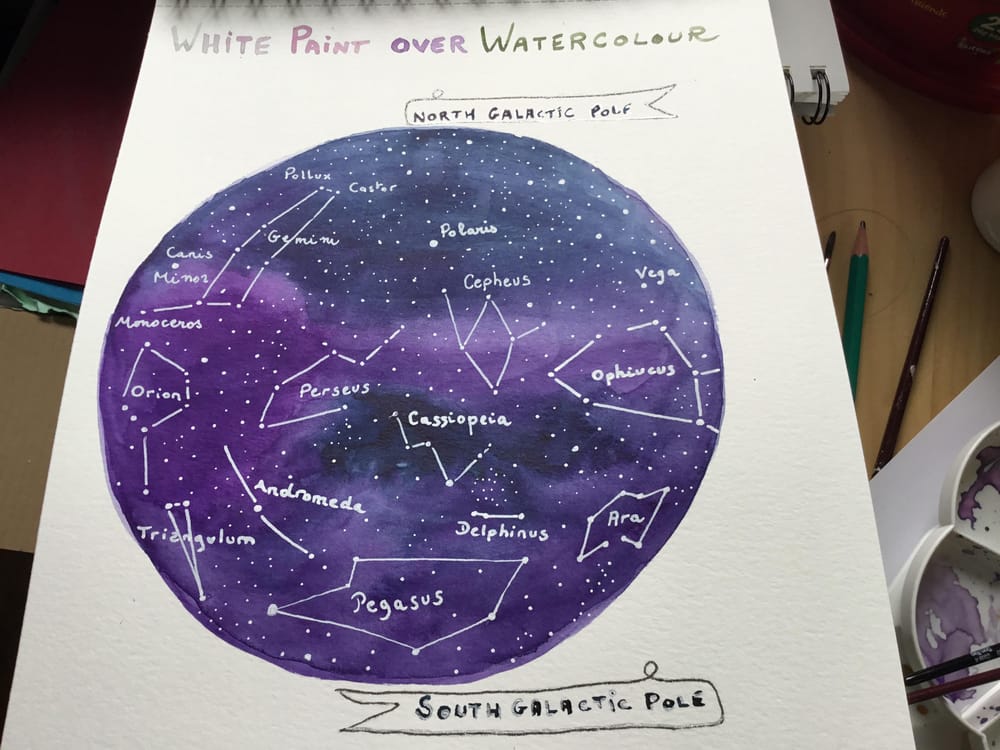 WHITE PAINT OVER WATERCOLOUR
NORTH GALACTIC POLE
Pollux
Castor
Gemini
Polaris
Canis
Minor
Cepheus
Vega
Monoceros
Orion
Perseus
Ophiucus
Cassiopeia
Andromeda
Delphinus
Ara
Triangulum
Pegasus
SOUTH GALACTIC POLE